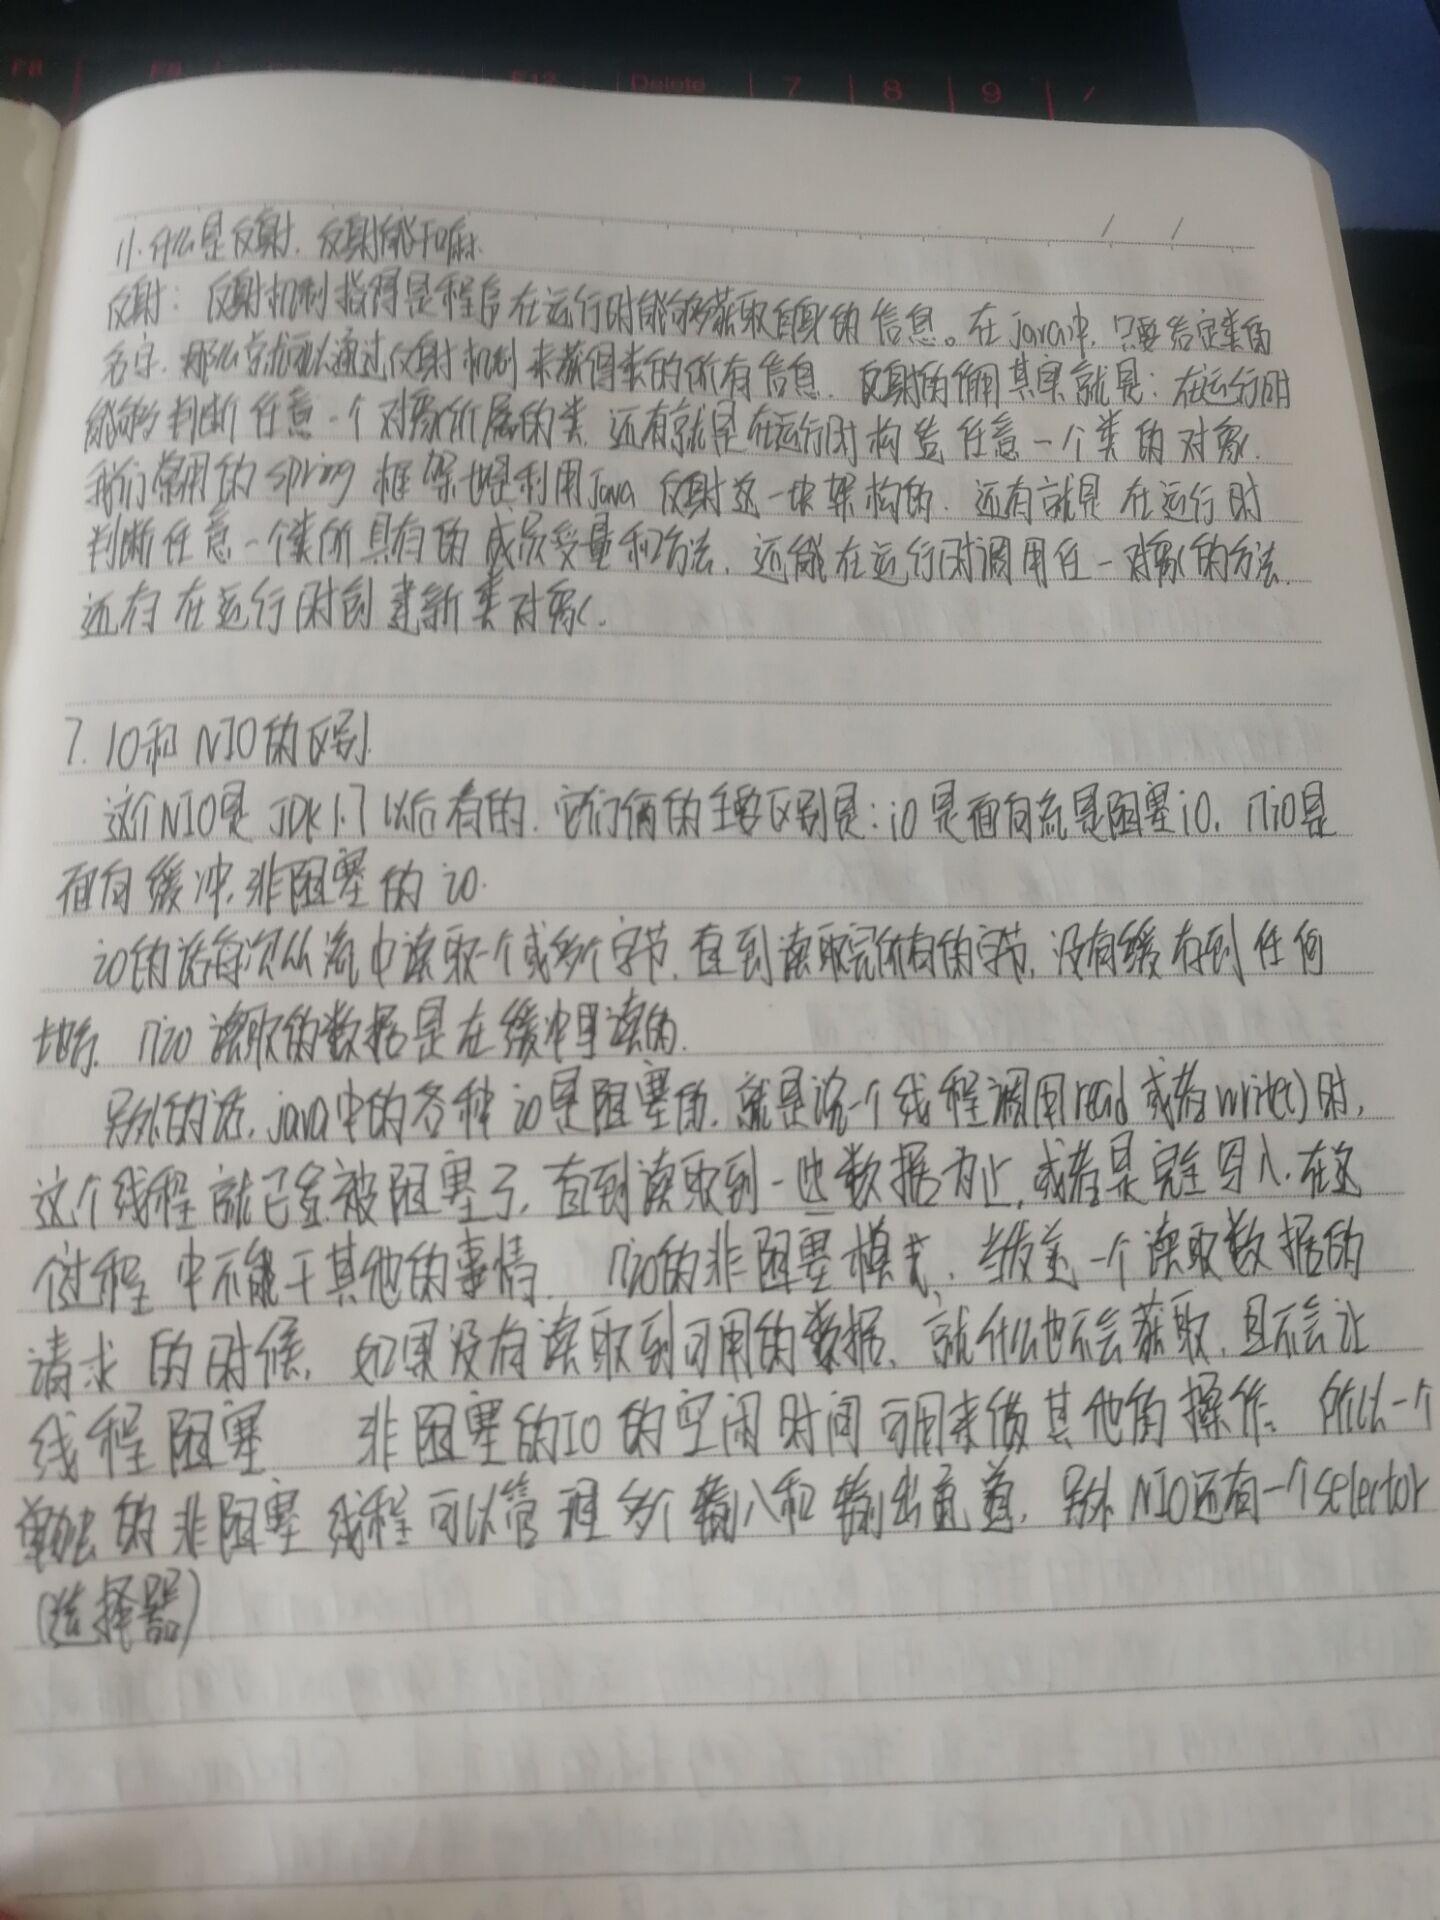 F8 F9 F12 Delete 7 8 9 /
/ /
11.什么是反射.反射能干嘛.
反射：反射机制指得是程序在运行时能够获取自身的信息。在java中,只要给定类的
名字,那么就可以通过反射机制来获得类的所有信息.反射的作用其实就是:在运行时
能够判断任意一个对象所属的类.还有就是在运行时构造任意一个类的对象.
我们常用的spring框架也是利用Java反射这一块架构的.还有就是在运行时
判断任意一个类所具有的成员变量和方法.还能在运行时调用任一对象的方法.
还有在运行时创建新类对象.
7.IO和NIO的区别.
这个NIO是JDK1.7以后有的.它们俩的主要区别是:io是面向流是阻塞io,nio是
面向缓冲,非阻塞的io.
io的话每次从流中读取一个或多个字节,直到读取完所有的字节,没有缓存到任何
地方.nio读取的数据是在缓冲里读的.
另外的话,java中的各种io是阻塞的.就是说一个线程调用read或者write()时,
这个线程就已经被阻塞了,直到读取到一些数据为止,或者是完全写入.在这
个过程中不能干其他的事情.nio的非阻塞模式,当发送一个读取数据的
请求的时候,如果没有读取到可用的数据,就什么也不会获取,且不会让
线程阻塞 非阻塞的IO的空闲时间可用来做其他的操作。所以一个
单独的非阻塞线程可以管理多个输入和输出通道,另外NIO还有一个selector
(选择器)